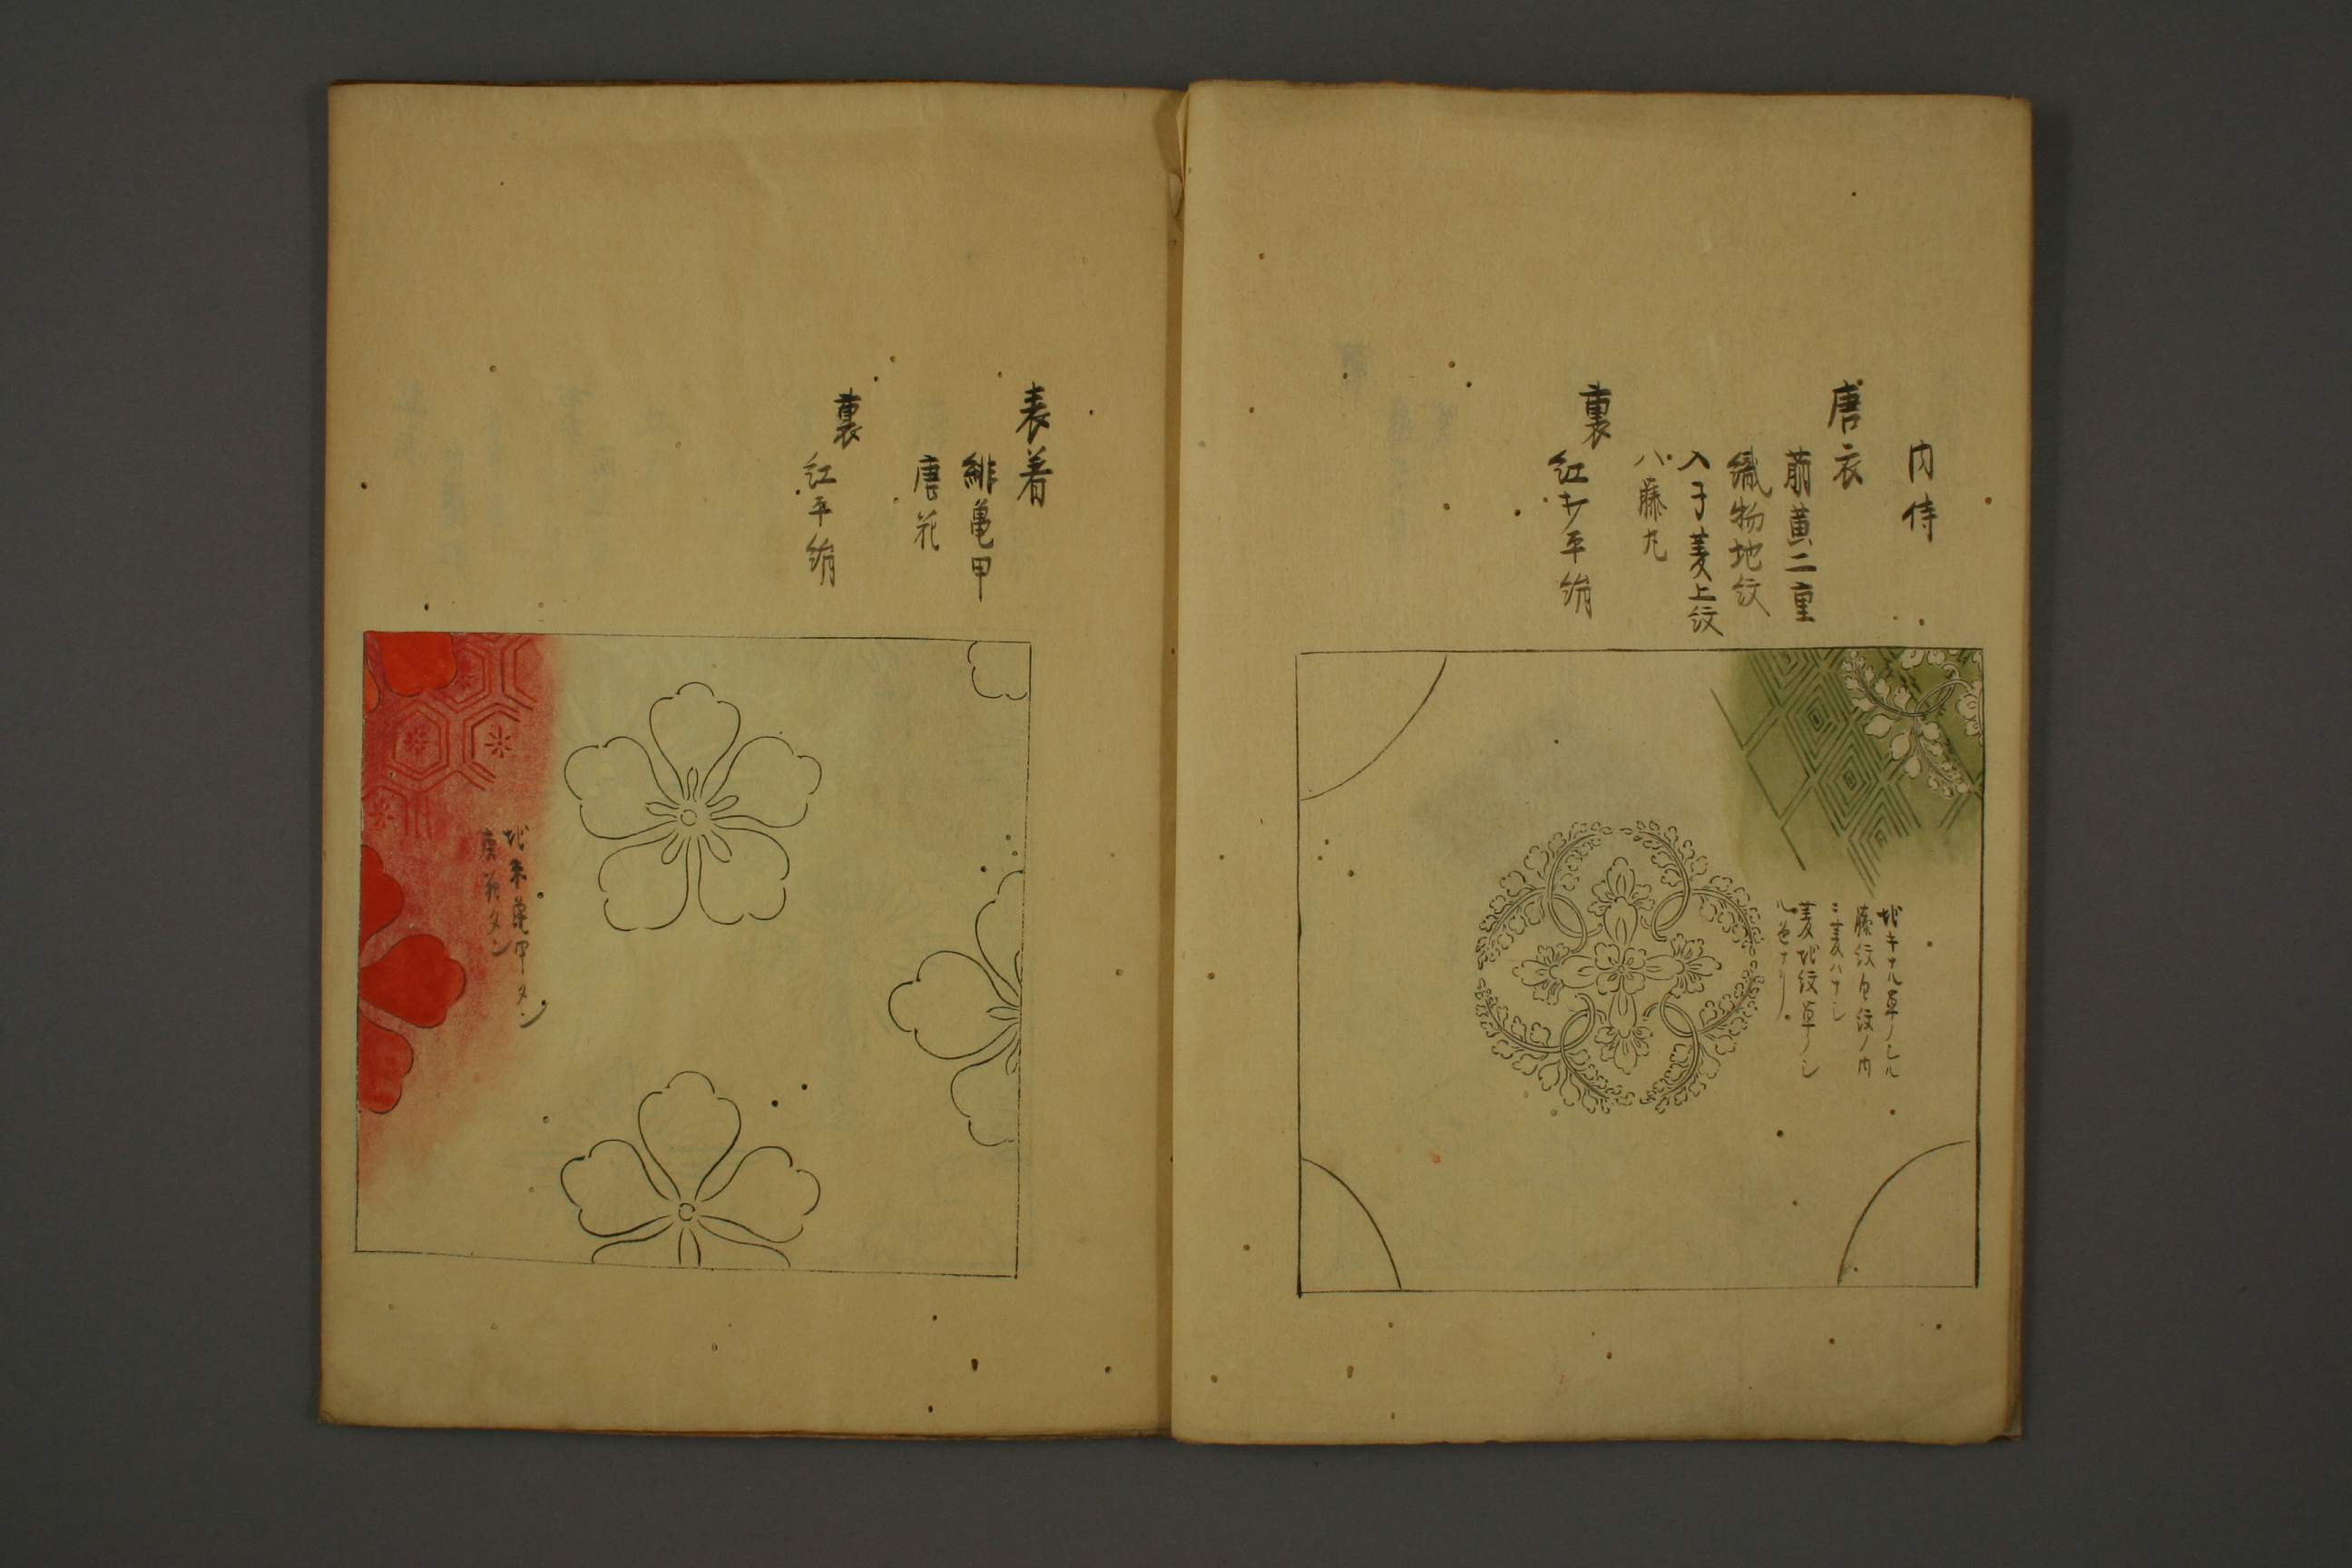 内侍
唐衣
萠黄二重
織物地紋
入子菱上紋
八藤丸
裏
平絹
地キナル草ノシル
藤紋白紋ノ内
ニ菱ハナシ
菱地紋草ノシ
ル色ナリ
表着
緋亀甲
唐花
裏
紅平絹
地朱亀甲タン
唐花タン